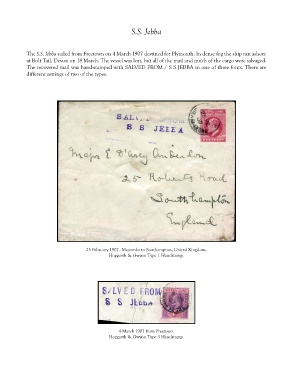 S.S. Jebba
The S.S. Jebba sailed from Freetown on 4 March 1907 destined for Plymouth. In dense fog the ship ran ashore
at Bolt Tail, Devon on 18 March. The vessel was lost, but all of the mail and much of the cargo were salvaged.
The recovered mail was handstamped with SALVED FROM / S S JEBBA in one of three fonts. There are
different settings of two of the types.
SALVED FROM
S S JEBBA
Major E. D'Arcy Anderson
25 Roberts Road
Southampton
England
to Southampton, United Kingdom.
Hoggarth & Gwynn Type 1 Handstamp.
SALVED FROM
S S JEBBA
4 March 1907 from Freetown.
Hoggarth & Gwynn Type 3 Handstamp.